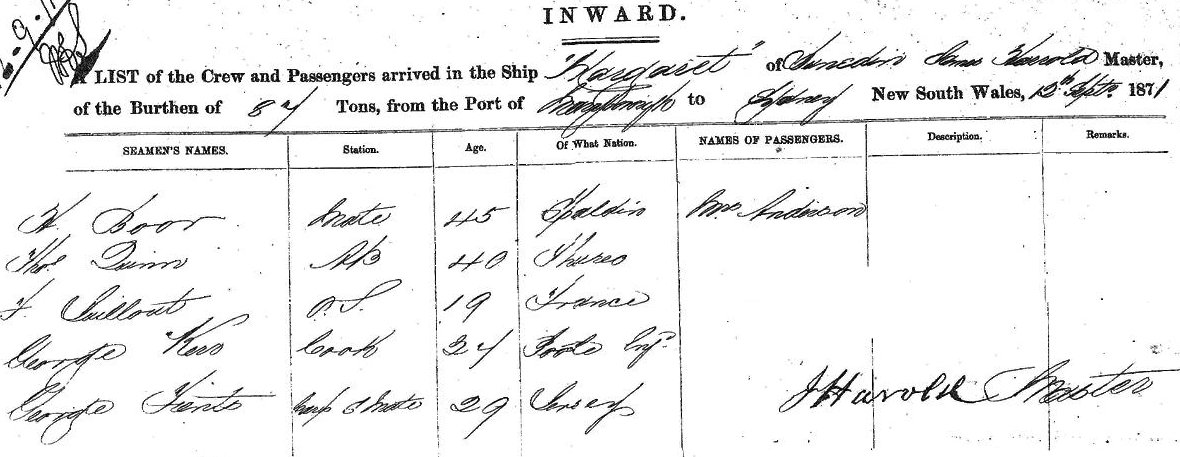 INWARD.
A LIST of the Crew and Passengers arrived in the Ship "Margaret" of Dunedin James Harrold Master,
of the Burthen of 87 Tons, from the Port of Maryborough to Sydney New South Wales, 12th Septr 1871
SEAMEN'S NAMES. Station. Age. Of What Nation. NAMES OF PASSENGERS. Description. Remarks.
H Boor Mate 45 Spaldin Mrs Anderson
Thos Quinn AB 40 Thurso
F. O.S. 19 France
George Kerr Cook 24 Poole Engd
George Mate 29 Jersey
J Harold Master